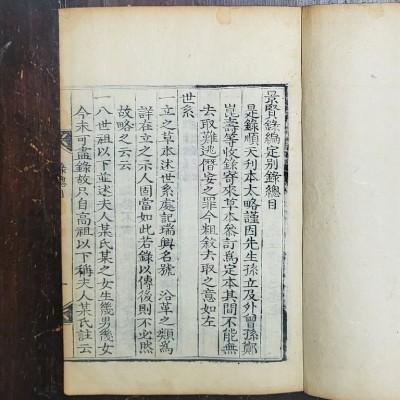 景賢錄編定別錄總目
是錄順天利本太略謹因先生孫立及外曾孫鄭
崑壽等收錄寄來草本參訂爲定本其間不能無
去取難逃僭妄之罪今粗敘去取之意如左
世系
一立之草本述世系處記瑞興名號 沿革之類爲
詳在立之示人固當如此若錄以傳後則不必然
故略之云云
一八世祖以下並述夫人某氏某之女生幾男幾女
今未可盡錄故只自高祖以下稱夫人某氏註云